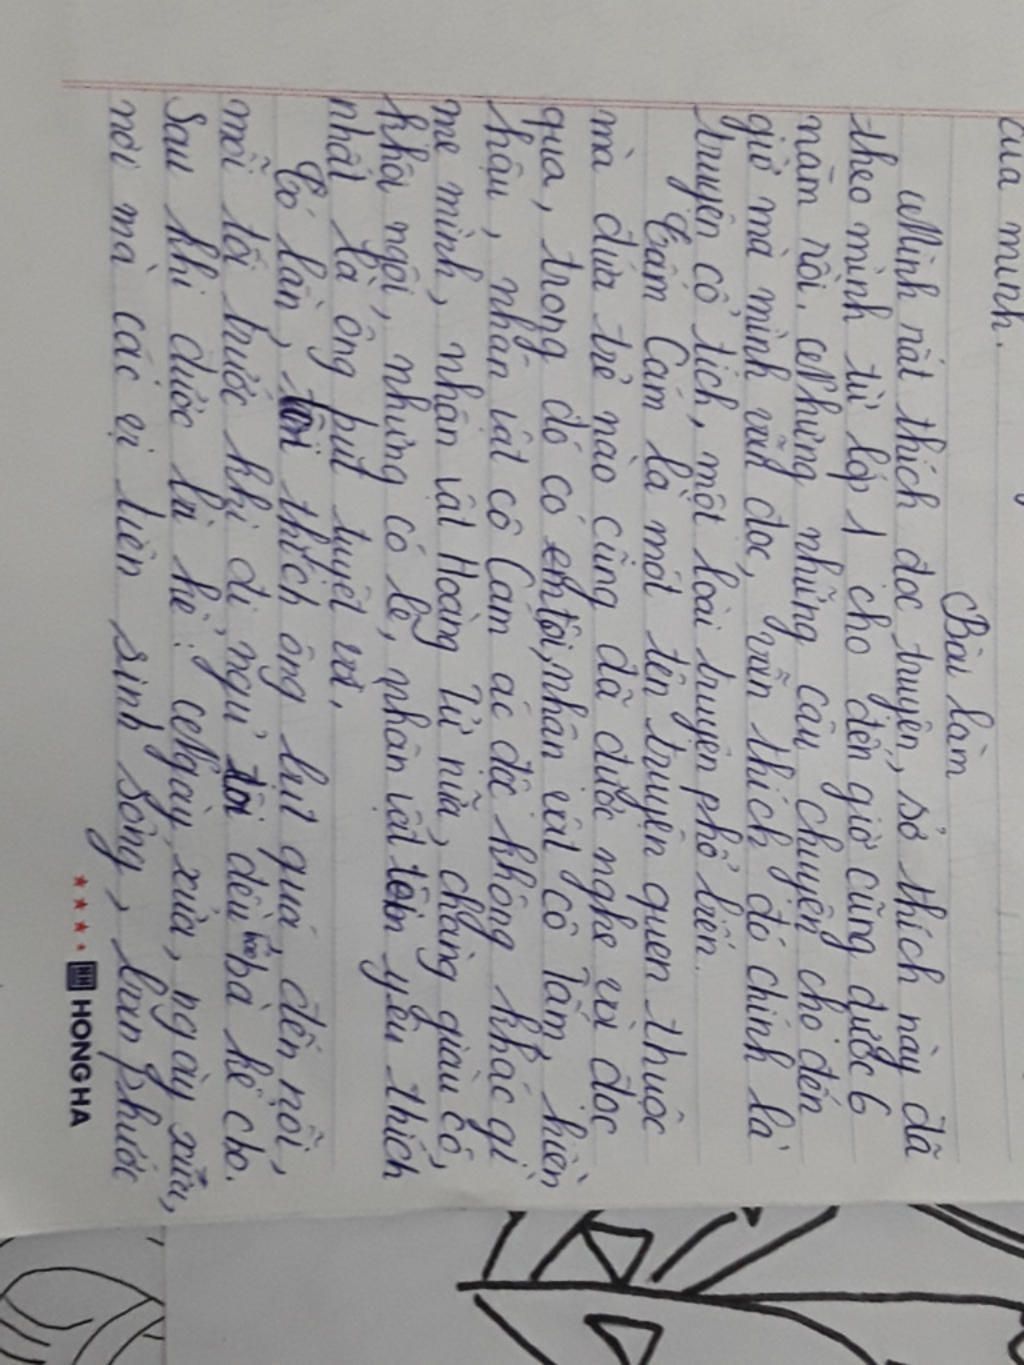 của mình.
Bài làm
Mình rất thích đọc truyện, sở thích này đã
theo mình từ lớp 1 cho đến giờ cũng được 6
năm rồi. Nhưng những câu chuyện cho đến
giờ mà mình vẫn đọc, vẫn thích đó chính là
truyện cổ tích, một loài truyện phổ biến.
Tấm Cám là một tên truyện quen thuộc
mà đứa trẻ nào cũng đã được nghe và đọc
qua, trong đó có em tôi, nhân vật cô Tấm, hiền
hậu, nhân vật cô Cám ác độc không khác gì
mẹ mình, nhân vật Hoàng Tử nữa, chàng giàu có,
khôi ngôi, nhưng có lẽ, nhân vật tôi yêu thích
nhất là ông bụt tuyệt vời.
Có lần, tôi thích ông bụt quá, đến nỗi,
mỗi tối trước khi đi ngủ tôi đều bà kể cho.
Sau khi được bà kể: Ngày xửa, ngày xưa,
nơi mà các vị tiên sinh sống, ban phước
HONG HA